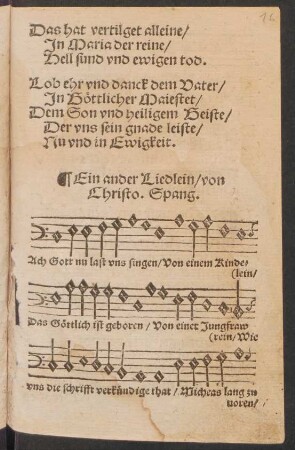 16
Das hat vertilget alleine/
In Maria der reine/
Hell sund vnd ewigen tod.
Lob ehr vnd danck dem Vater/
In Göttlicher Maiestet/
Dem Son vnd heiligem Geiste/
Der vns sein gnade leiste/
Nu vnd in Ewigkeit.
¶ Ein ander Liedlein/von
Christo. Spang.
Ach Gott nu last vns singen/Von einem Kinde/
(lein/
Das Göttlich ist geboren/Von einer Jungfraw
(rein/Wie
vns die schrifft verkündige that/Micheas lang zu
uoren/